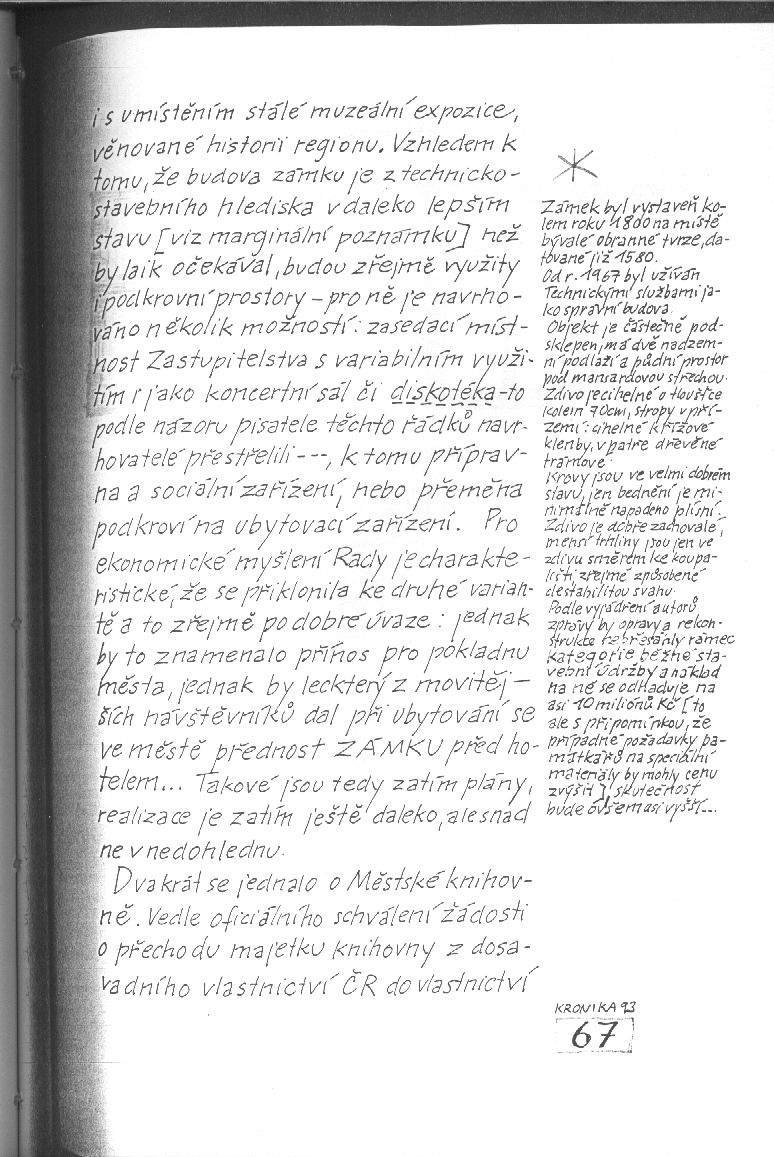 i s umístěním stálé muzeální expozice,
věnované historii regionu. Vzhledem k
tomu, že budova zámku je z technicko-
stavebního hlediska v daleko lepším
stavu [viz marginální poznámku] než
by laik očekával, budou zřejmě využity
i podkrovní prostory – pro ně je navrho-
váno několik možností: zasedací míst-
nost Zastupitelstva s variabilním využi-
tím i jako koncertní sál či diskotéka - to
podle názoru pisatele těchto řádků navr-
hovatelé přestřelili ---, k tomu příprav-
na a sociální zařízení, nebo přeměna
podkroví na ubytovací zařízení. Pro
ekonomické myšlení Rady je charakte-
ristické, že se přiklonila ke druhé varian-
tě a to zřejmě po dobré úvaze : jednak
by to znamenalo přínos pro pokladnu
města, jednak by leckterý z movitěj-
ších návštěvníků dal při ubytování se
ve městě přednost ZÁMKU před ho-
telem... Takové jsou tedy zatím plány,
realizace je zatím ještě daleko, ale snad
ne v nedohlednu.
Dvakrát se jednalo o Městské knihov-
ně. Vedle oficiálního schválení žádosti
o přechodu majetku knihovny z dosa-
vadního vlastnictví ČR do vlastnictví
Zámek byl vystaveň ko-
lem roku 1800 na místě
bývalé obranné tvrze, da-
tované již 1580.
Od r. 1967 byl užíván
Technickými službami ja-
ko správní budova.
Objekt je částečně pod-
sklepen, má dvě nadzem-
ní podlaží a půdní prostor
pod mansardovou střechou.
Zdivo je cihelné o tloušťce
kolem 70cm, stropy v pří-
zemí: cihelné křížové
klenby, v patře dřevěné
trámové.
Krovy jsou ve velmi dobrém
stavu, jen bednění je mi-
nimálně napadeno plísní.
Zdivo je dobře zachovalé,
menší trhliny jsou jen ve
zdivu směrem ke koupa-
lišti, zřejmě způsobené
destabilitou svahu.
Podle vyjádření autorů
zprávy by opravy a rekon-
strukce nepřesáhly rámec
kategorie běžné sta-
vební údržby a náklad
na ně se odhaduje na
asi 10 milionů Kč [to
ale s připomínkou, že
případné požadavky pa-
mátkářů na speciální
materiály by mohly cenu
zvýšit], skutečnost
bude ovšem asi vyšší...
KRONIKA 93
67